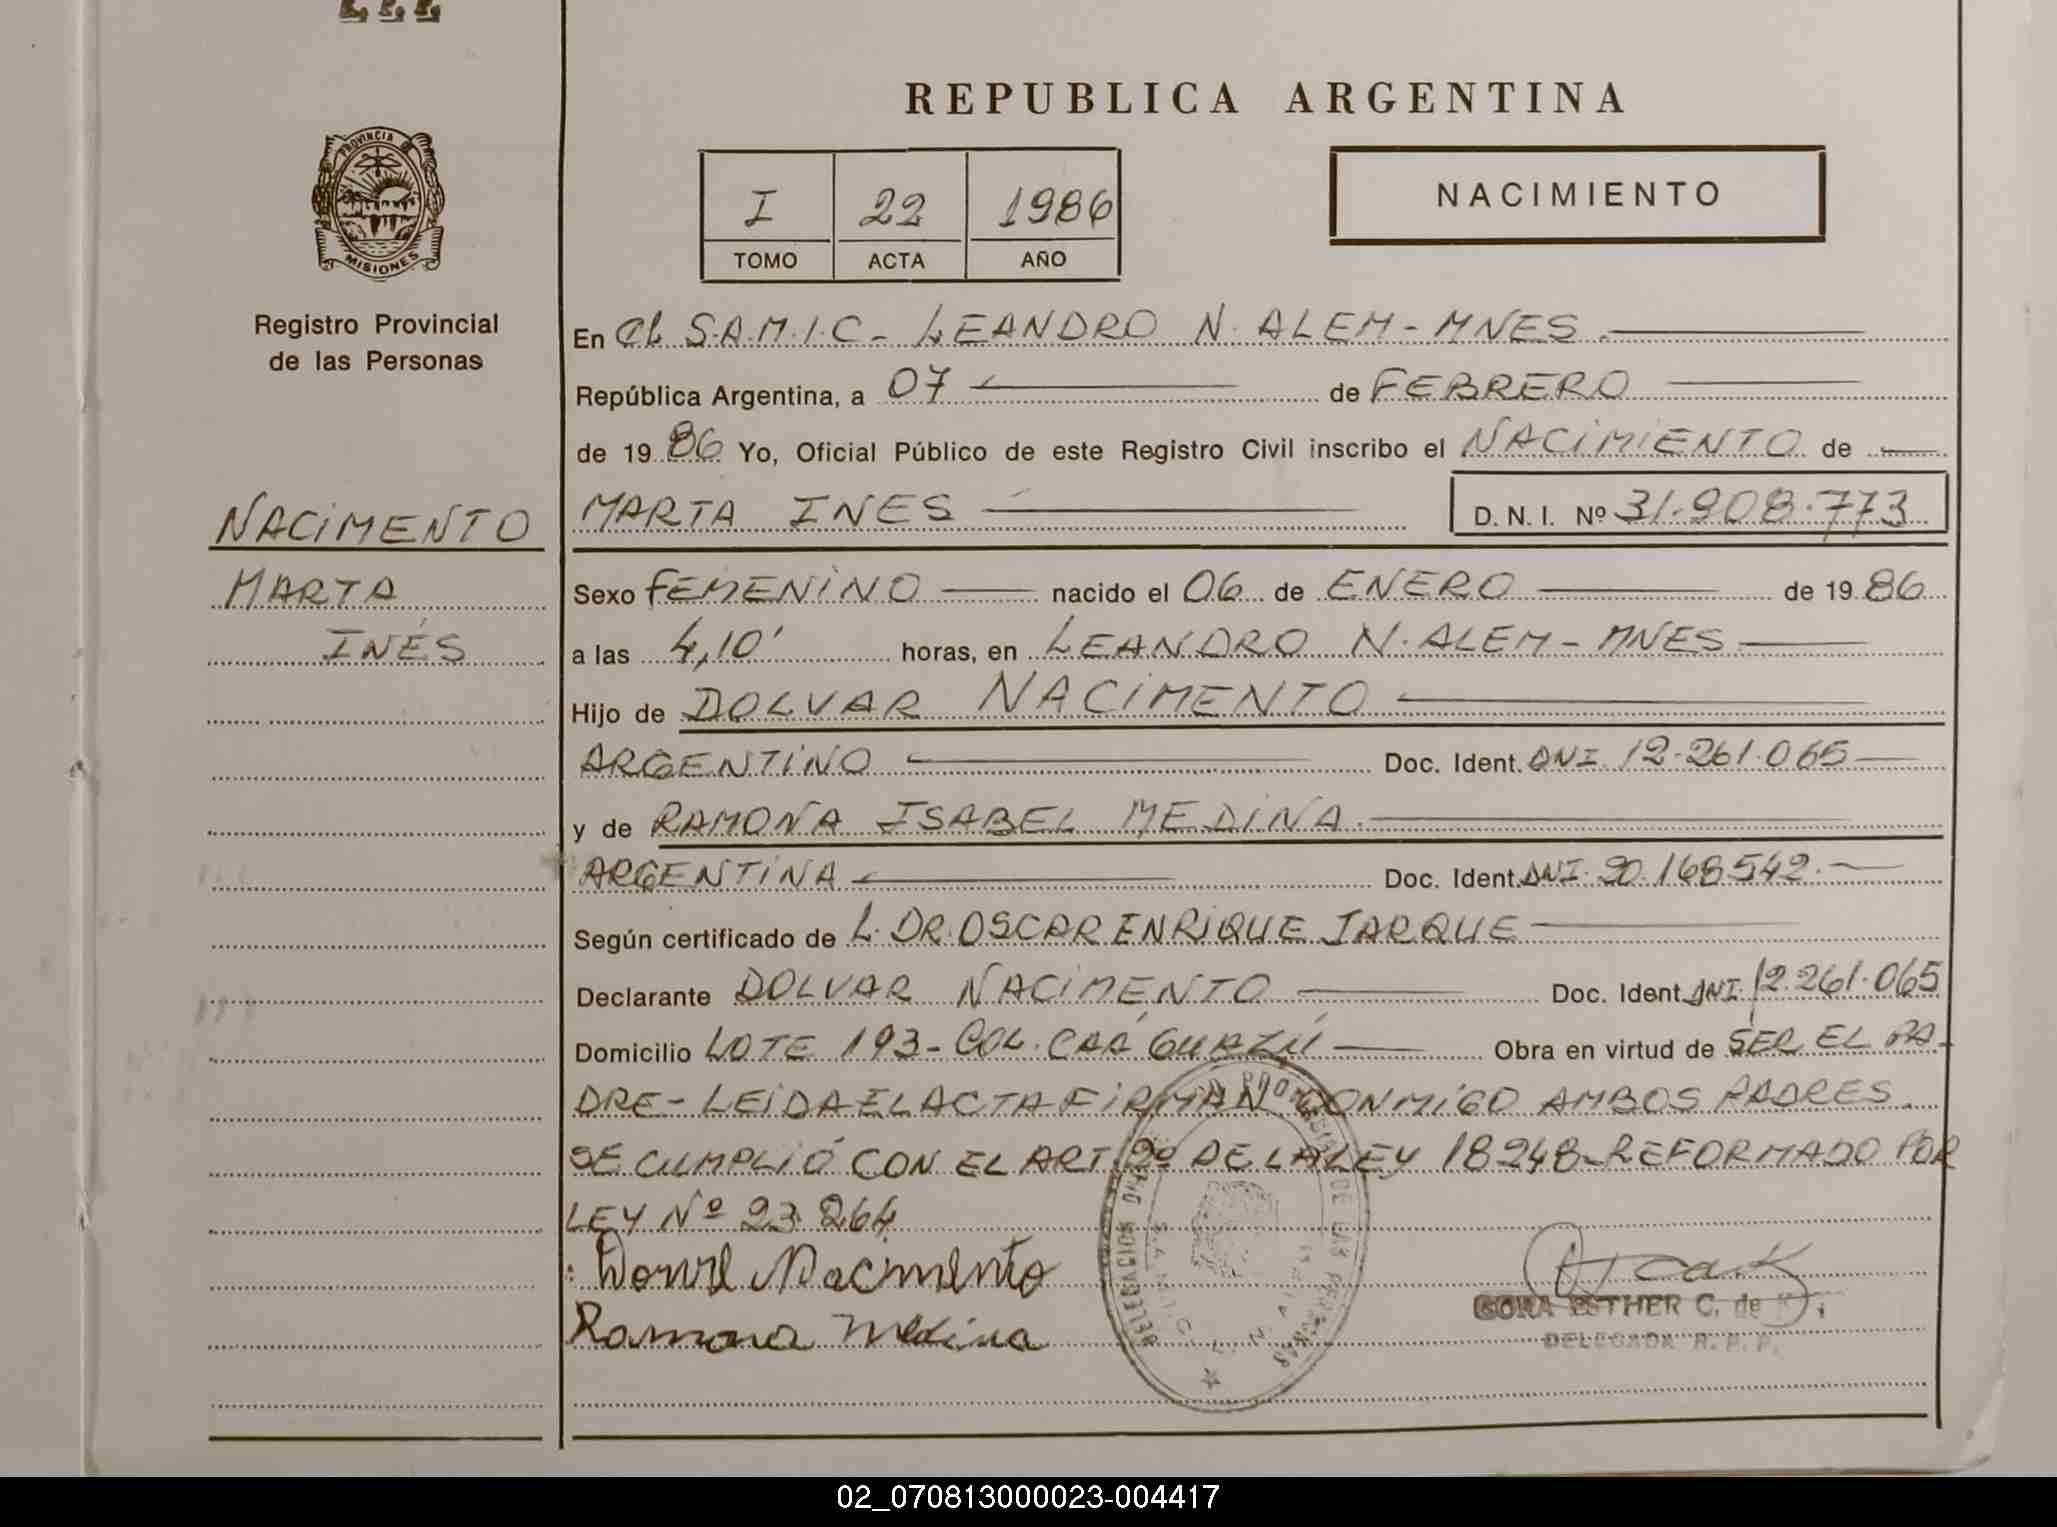 REPUBLICA ARGENTINA
PROVINCIA DE
MISIONES
I 22 1986
TOMO ACTA AÑO
NACIMIENTO
Registro Provincial
de las Personas
NACIMENTO
MARTA
INÉS
En el S.A.M.I.C - LEANDRO N. ALEM - MNES.
República Argentina, a 07 de FEBRERO
de 1986 Yo, Oficial Público de este Registro Civil inscribo el NACIMIENTO de
MARTA INES D.N.I. Nº 31.908.773
Sexo FEMENINO nacido el 06 de ENERO de 1986
a las 4,10' horas, en LEANDRO N. ALEM - MNES
Hijo de DOLVAR NACIMENTO
ARGENTINO Doc. Ident. DNI 12.261.065
y de RAMONA ISABEL MEDINA.
ARGENTINA Doc. Ident. DNI. 20.168542.
Según certificado de L. DR. OSCAR ENRIQUE JARQUE
Declarante DOLVAR NACIMENTO Doc. Ident. DNI. 12.261.065
Domicilio LOTE 193 - COL. CAÁ GUAZÚ Obra en virtud de SER EL PA-
DRE - LEIDA EL ACTA FIRMAN CONMIGO AMBOS PADRES.
SE CUMPLIÓ CON EL ART. 2º DE LA LEY 18248 - REFORMADO POR
LEY Nº 23.264
Nacimento
Ramona Medina
ESTHER C. de
DELEGADA R. P. P.
DELEGACION
DE LAS PERSONAS
02_070813000023-004417